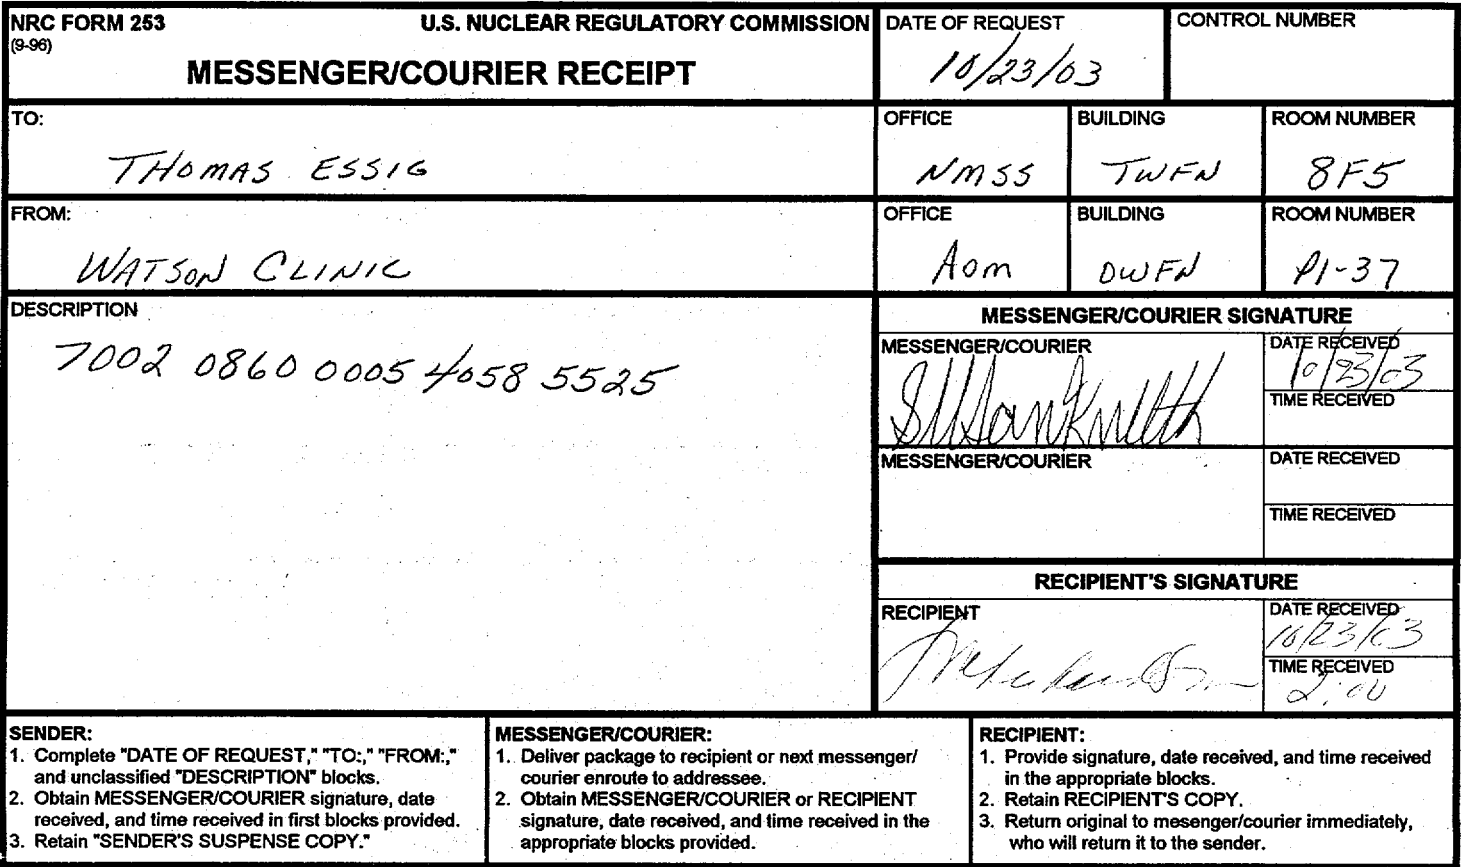 NRC FORM 253
(9-96)
U.S. NUCLEAR REGULATORY COMMISSION
MESSENGER/COURIER RECEIPT
DATE OF REQUEST
10/23/03
CONTROL NUMBER
TO:
THOMAS ESSIG
OFFICE
NMSS
BUILDING
TWFN
ROOM NUMBER
8F5
FROM:
WATSON CLINIC
OFFICE
Aom
BUILDING
OWFN
ROOM NUMBER
P1-37
DESCRIPTION
7002 0860 0005 4058 5525
MESSENGER/COURIER SIGNATURE
MESSENGER/COURIER
DATE RECEIVED
10/23/03
TIME RECEIVED
MESSENGER/COURIER
DATE RECEIVED
TIME RECEIVED
RECIPIENT'S SIGNATURE
RECIPIENT
DATE RECEIVED
10/23/03
TIME RECEIVED
2:00
SENDER:
1. Complete "DATE OF REQUEST," "TO:," "FROM:,"
and unclassified "DESCRIPTION" blocks.
2. Obtain MESSENGER/COURIER signature, date
received, and time received in first blocks provided.
3. Retain "SENDER'S SUSPENSE COPY."
MESSENGER/COURIER:
1. Deliver package to recipient or next messenger/
courier enroute to addressee.
2. Obtain MESSENGER/COURIER or RECIPIENT
signature, date received, and time received in the
appropriate blocks provided.
RECIPIENT:
1. Provide signature, date received, and time received
in the appropriate blocks.
2. Retain RECIPIENT'S COPY.
3. Return original to mesenger/courier immediately,
who will return it to the sender.